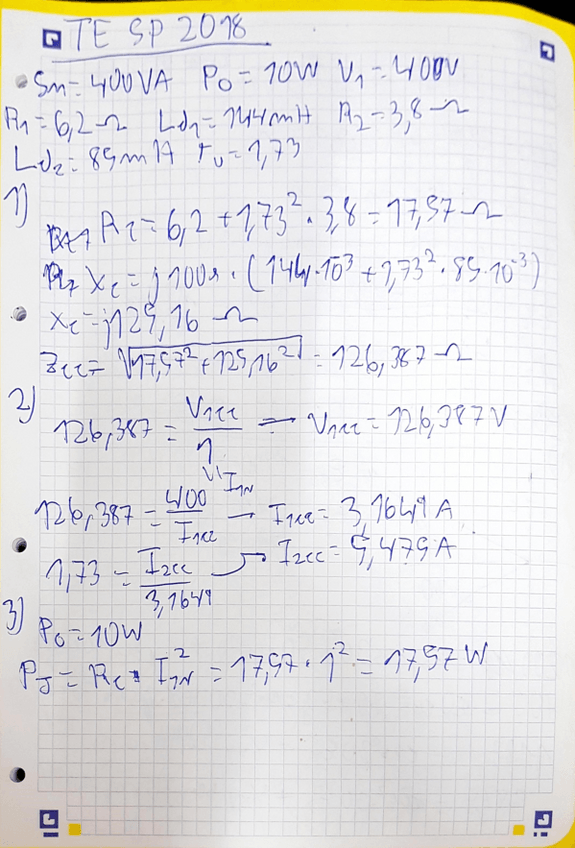 TE SP 2018
Sn=400VA P0=10W V1=400V
R1=6,2Ω Ld1=144mH R2=3,8Ω
Ld2=85mH rv=1,73
1)
Rc=6,2+1,73²·3,8=17,57Ω
Xc=j100π·(144·10⁻³+1,73²·85·10⁻³)
Xc=j125,16Ω
Zcc=√17,57²+125,16²=126,387Ω
2)
126,387=V1cc/1→V1cc=126,387V
I1N
126,387=400/I1cc→I1cc=3,1649A
1,73=I2cc/3,1649→I2cc=5,475A
3)
P0=10W
PJ=Rc·I1N²=17,57·1²=17,57W